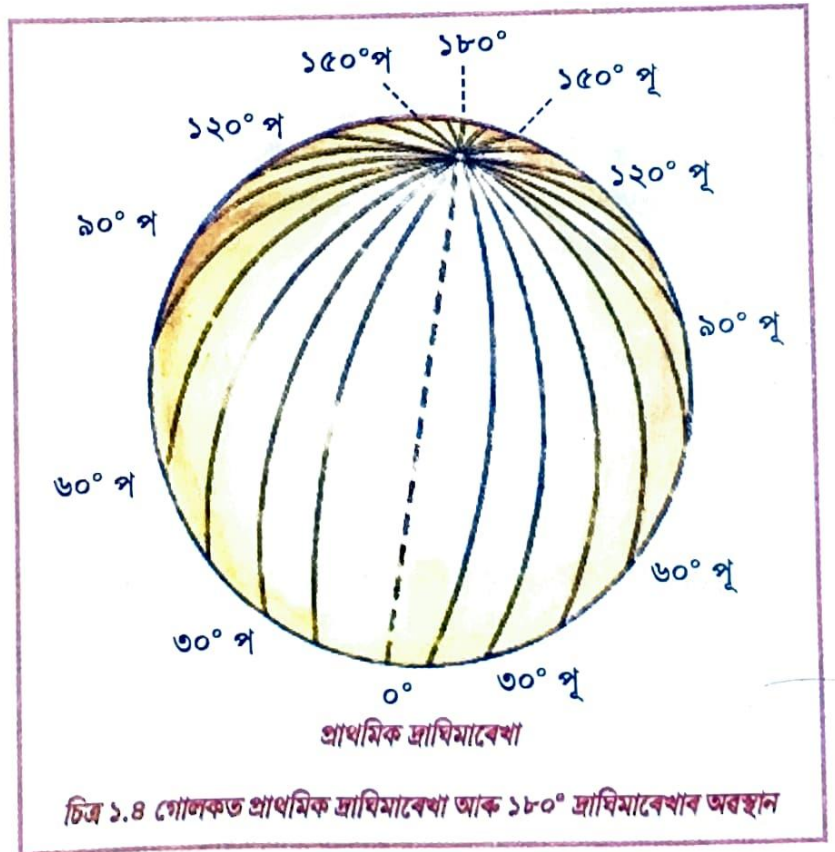 ১৫০°প ১৮০° ১৫০° পূ
১২০° প ১২০° পূ
৯০° প
৯০° পূ
৬০° প
৬০° পূ
৩০° প ৩০° পূ
০°
প্ৰাথমিক দ্ৰাঘিমাৰেখা
চিত্ৰ ১.৪ গোলকত প্ৰাথমিক দ্ৰাঘিমাৰেখা আৰু ১৮০° দ্ৰাঘিমাৰেখাৰ অৱস্থান